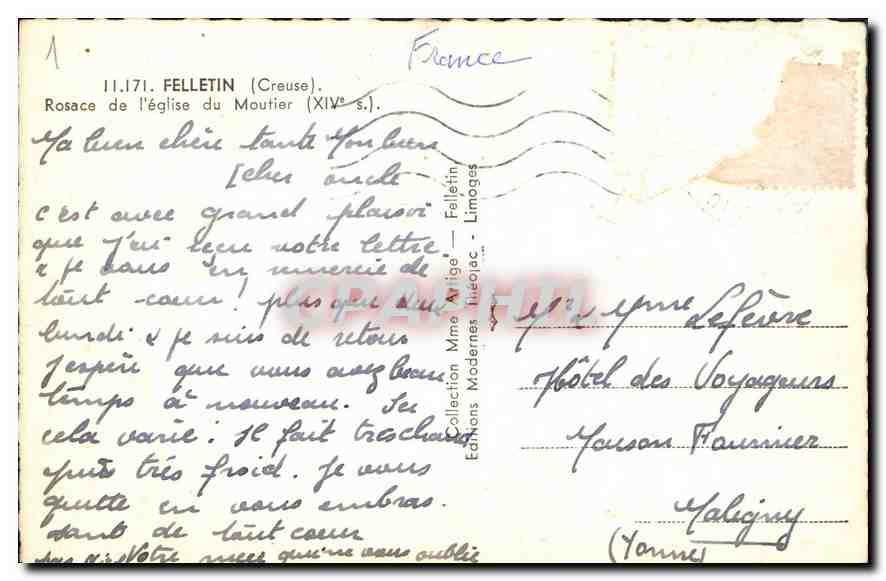 1
France
11.171. FELLETIN (Creuse).
Rosace de l'église du Moutier (XIVe s.).
Ma bien chère tante Mon bien
[cher oncle
c'est avec grand plaisir
que j'ai reçu votre lettre
& je vous en remercie de
tout cœur! plus que
lundi & je suis de retour
J'espère que vous avez beau
temps à nouveau. Ici
cela varie: Il fait très chaud
puis très froid. Je vous
quitte en vous embras
sant de tout cœur
Votre qui ne vous oublie
Collection Mme Artige — Felletin
Editions Modernes Théojac - Limoges
CPAPHIL
Mr & Mme Lefèvre
Hôtel des Voyageurs
Maison Fournier
Maligny
(Yonne)